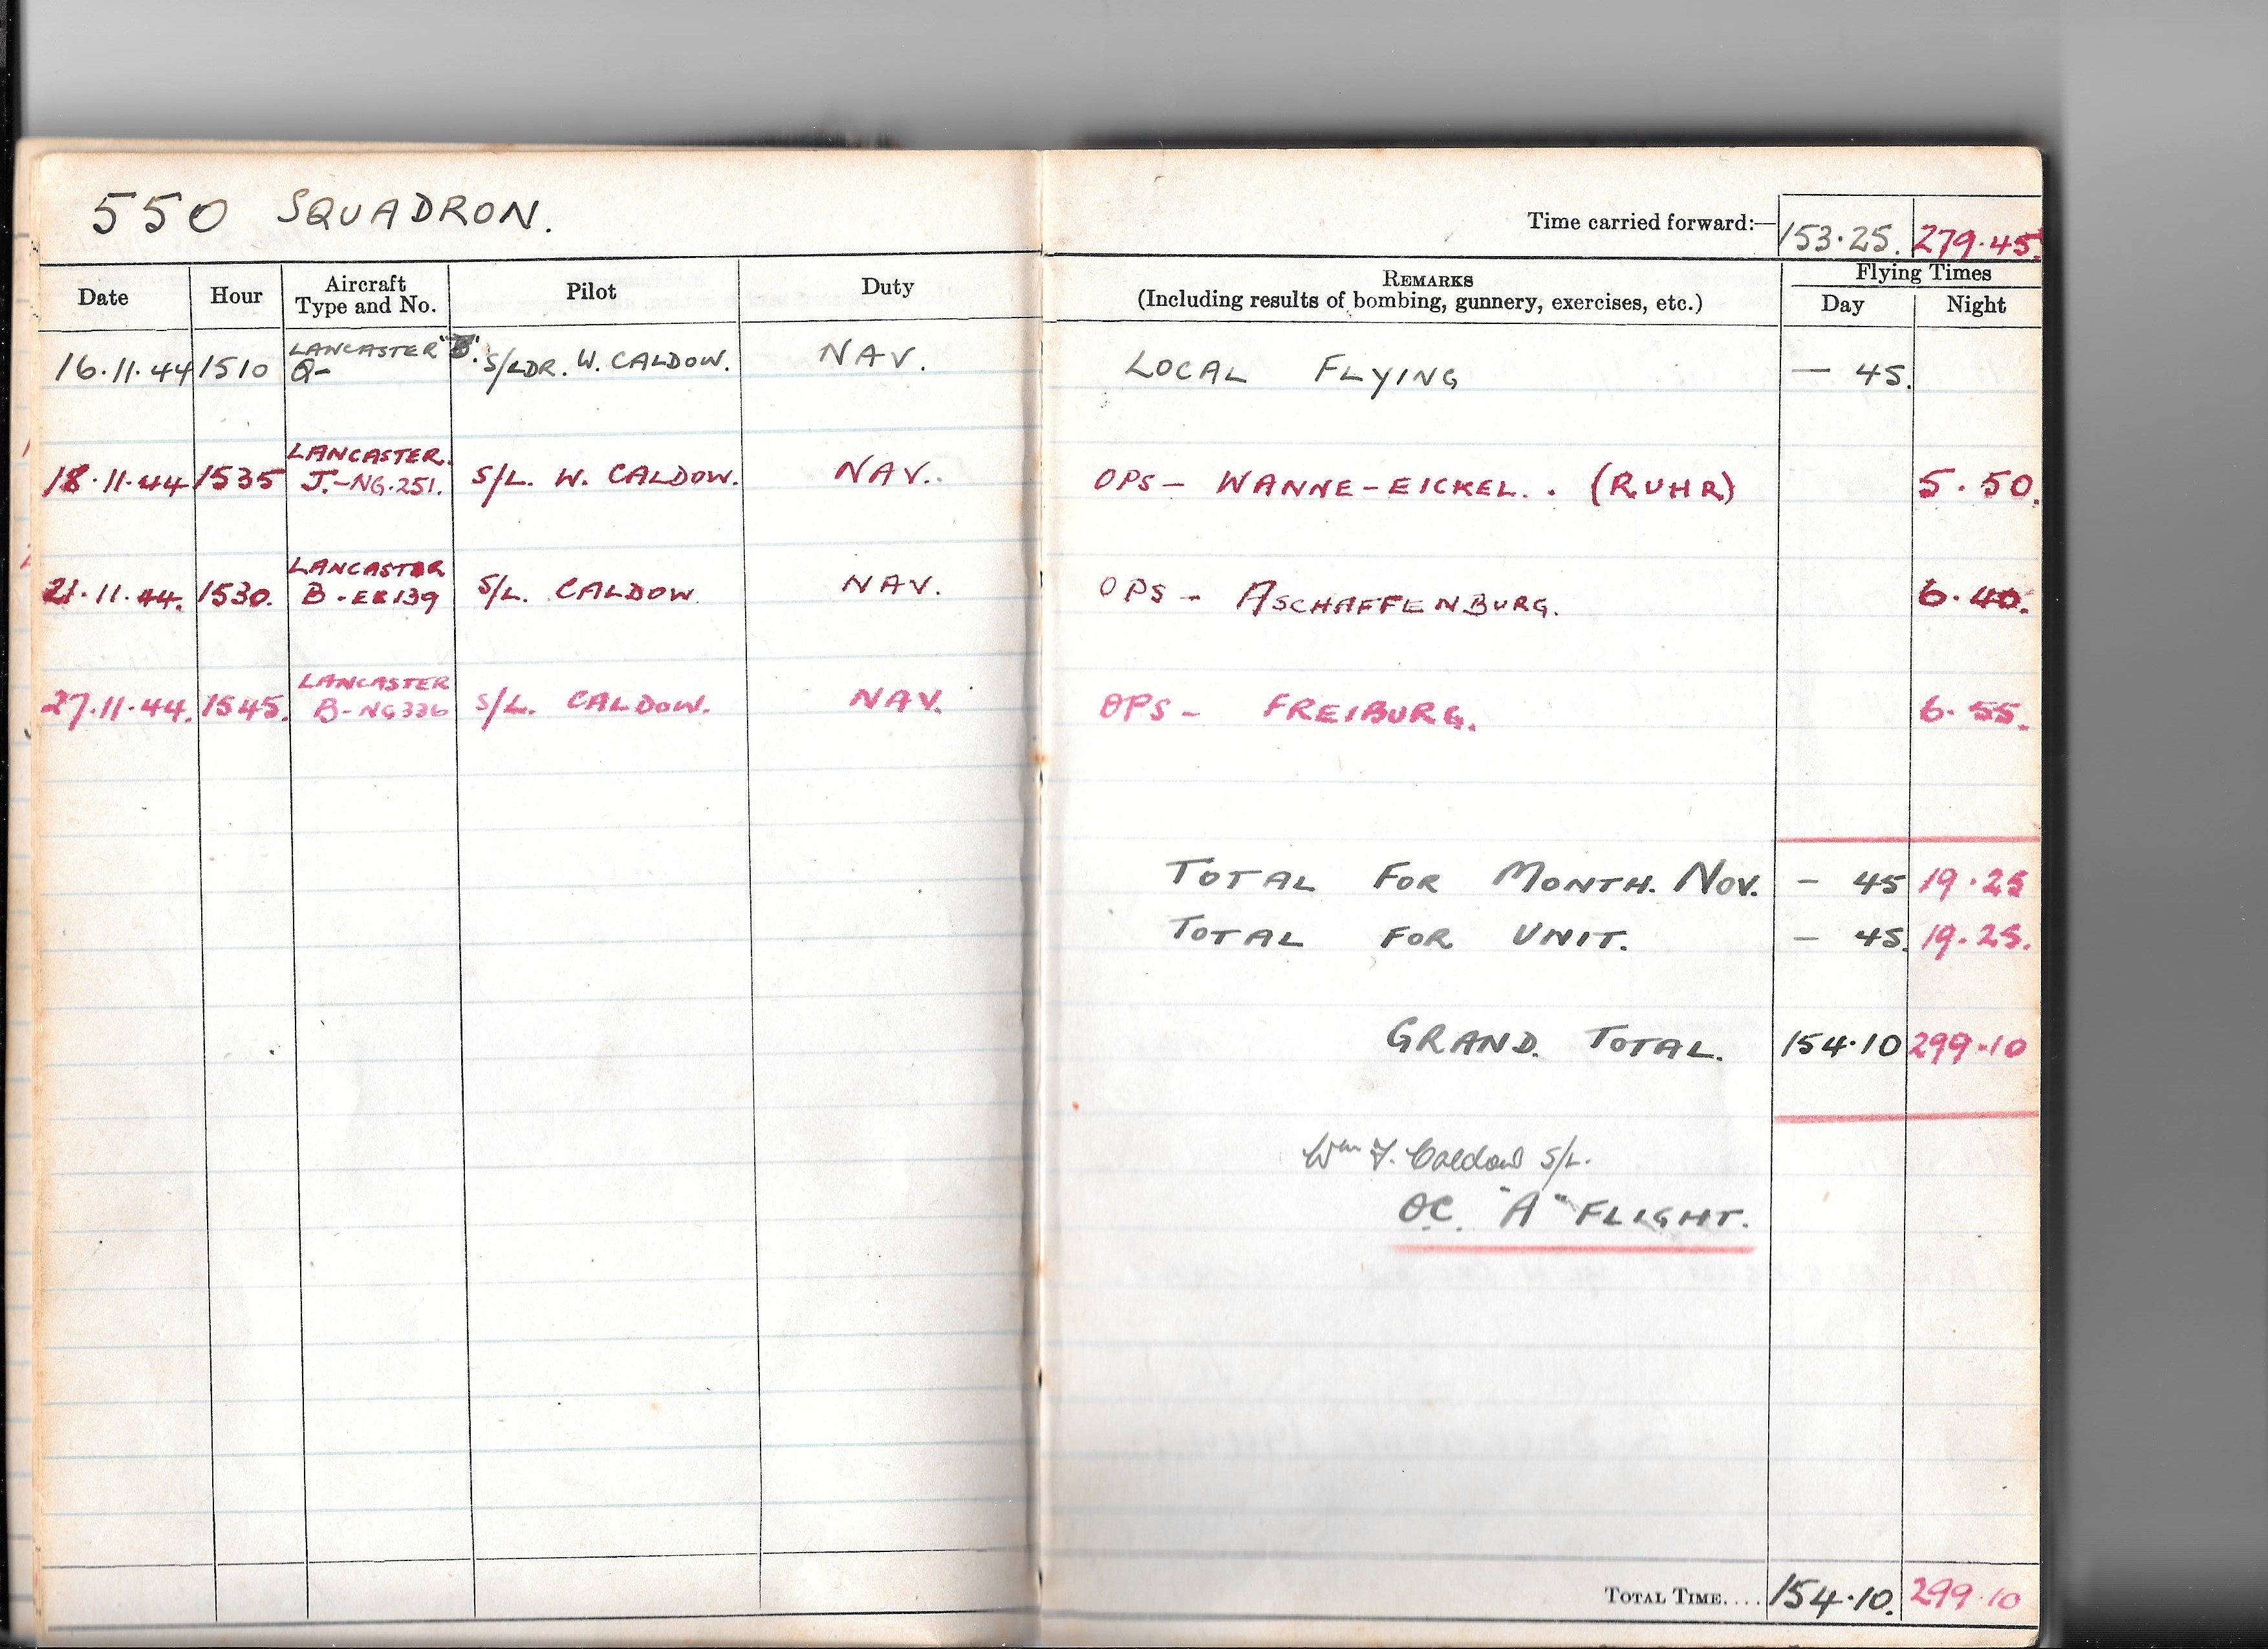 550 SQUADRON.
Time carried forward:— 153·25. 279·45.
Date Hour Aircraft Type and No. Pilot Duty REMARKS (Including results of bombing, gunnery, exercises, etc.) Flying Times Day Night
16.11.44 1510 LANCASTER "B". Q- S/LDR. W. CALDOW. NAV. LOCAL FLYING — 45.
18.11.44 1535 LANCASTER. J.-NG.251. S/L. W. CALDOW. NAV. OPS - WANNE-EICKEL. . (RUHR) 5.50.
21.11.44. 1530. LANCASTER B - EE139 S/L. CALDOW. NAV. OPS - ASCHAFFENBURG. 6.40.
27.11.44. 1545. LANCASTER B-NG336 S/L. CALDOW. NAV. OPS - FREIBURG. 6.55.
TOTAL FOR MONTH. NOV. - 45 19.25
TOTAL FOR UNIT. - 45. 19.25.
GRAND. TOTAL. 154.10 299.10
Wm F. Caldow S/L.
O.C. "A" FLIGHT.
TOTAL TIME.... 154.10. 299.10